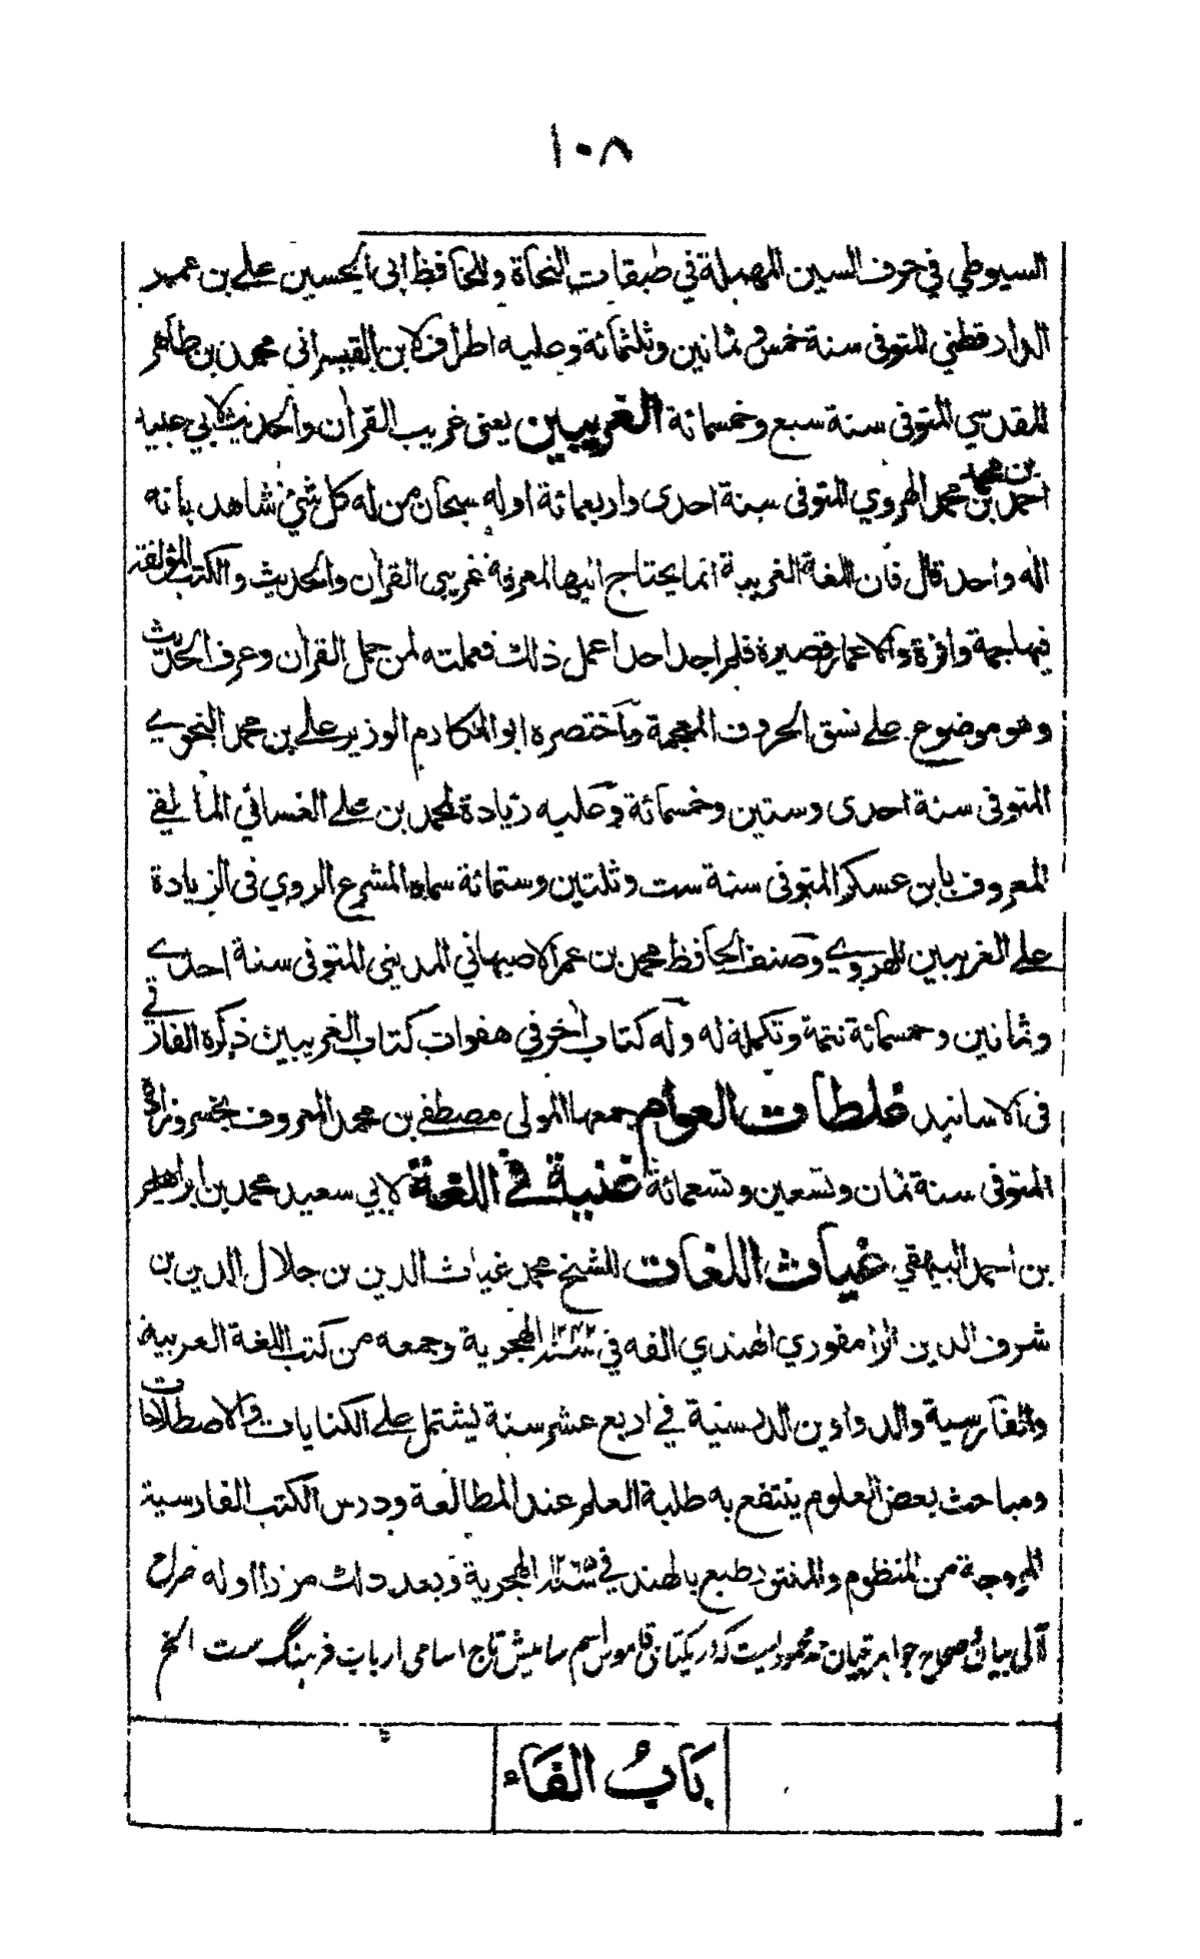 ١٠٨
السيوطي في حرف السين المهملة في طبقات النحاة وللحافظ ابى الحسين علے بن عمر
الدارقطني المتوفى سنة خمس و ثمانين وثلثمائة وعليه اطراف لابن القيسرانى محمد بن طاهر
المقدسي المتوفى سنة سبع وخمسمائة الغريبين يعنى غريب القرآن والحديث لابي عبيد
احمد بن محمد بن محمد الهروي المتوفى سنة احدى واربعمائة اوله سبحان من له كل شئ شاهد بانه
الله واحد قال فان اللغة الغريبة انما يحتاج اليها لمعرفة غريبى القرآن والحديث والكتب المؤلفة
فيها جمة وافرة والاعمار قصيرة فلم اجد احدا عمل ذلك فعملته لمن حمل القرآن وعرف الحديث
وهو موضوع علے نسق الحروف المعجمة واختصره ابو المكارم الوزير علے بن محمد النحوي
المتوفى سنة احدى وستين وخمسمائة وعليه زيادة لمحمد بن علے الغساني المالقي
المعروف بابن عسكر المتوفى سنة ست وثلثين وستمائة سماه المشرع الروي فى الزيادة
علے الغريبين للهروي وصنف الحافظ محمد بن عمر الاصبهاني المدينى المتوفى سنة احدى
وثمانين وخمسمائة تتمة وتكملة له وله كتاب آخر في هفوات كتاب الغريبين ذكره الفارقي
فى الاسانيد غلطات العوام جمعها المولى مصطفے بن محمد المعروف بخسروزاده
المتوفى سنة ثمان وتسعين وتسعمائة غنية في اللغة لابي سعيد محمد بن ابراهيم
بن احمد البيهقي غياث اللغات للشيخ محمد غياث الدين بن جلال الدين بن
شرف الدين الرامفوري الهندي الفه في سنة ١٢٤٢ الهجرية وجمعه من كتب اللغة العربية
والفارسية والدواوين الدرسنية في اربع عشر سنة يشتمل علے الكنايات والاصطلاحات
ومباحث بعض العلوم ينتفع به طلبة العلم عند المطالعة ودرس الكتب الفارسية
المروجة من المنظوم والمنثور طبع بالهند في سنة الهجرية وبعد ذلك مرارا اوله صراح
لآلى بيان وصحاح جواهر تبيان حمد محموديست كه در يكتا قاموس اسم ساميش تاج اسامى ارباب فرہنگ ست الخ
بَابُ الفَاء